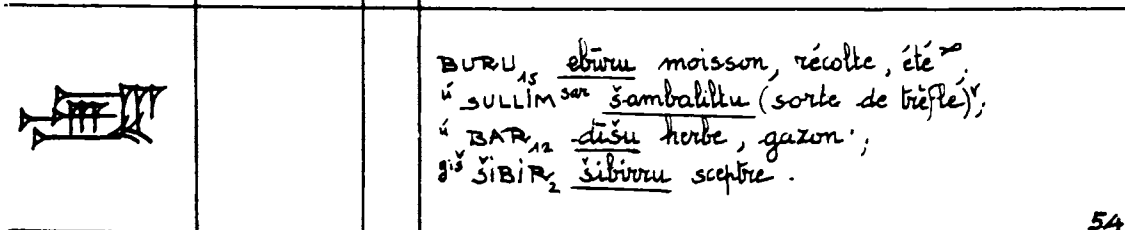 BURU₁₅ ebūru moisson, récolte, été ;
ú SULLIM sar šambaliltu (sorte de trèfle) ;
ú BAR₁₂ dīšu herbe, gazon ;
giš ŠIBIR₂ šibirru sceptre.
54